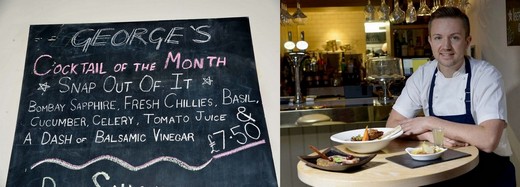 GEORGE'S
COCKTAIL OF THE MONTH
SNAP OUT OF IT
BOMBAY SAPPHIRE, FRESH CHILLIES, BASIL,
CUCUMBER, CELERY, TOMATO JUICE &
A DASH OF BALSAMIC VINEGAR £7.50